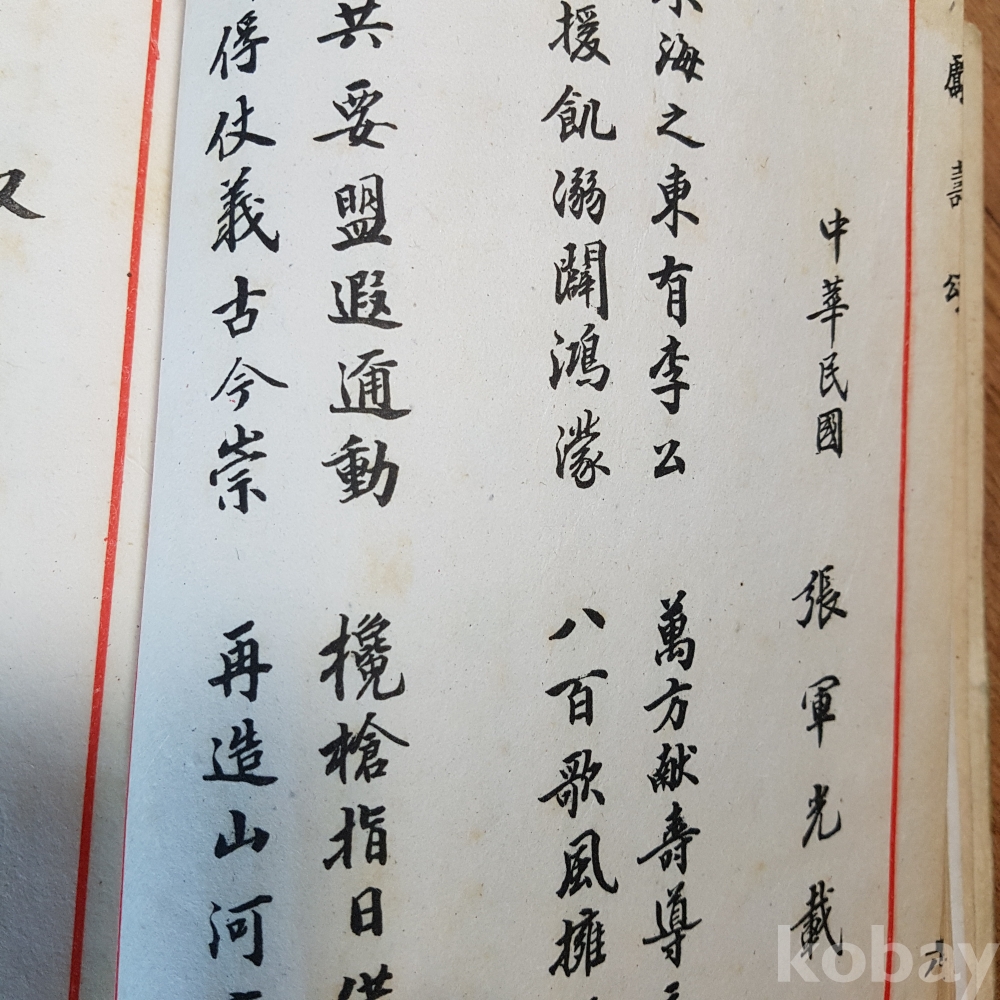 獻壽頌
中華民國 張軍光載
海之東有李公 萬方献壽導
援飢溺闢鴻濛 八百歌風擁
共要盟遐邇動 欃槍指日
俘仗義古今崇 再造山河
kobay